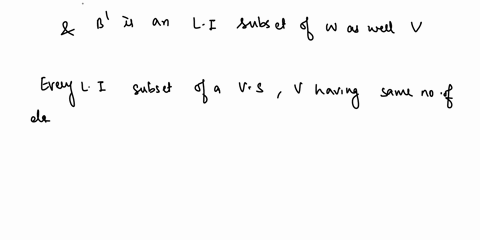 & B' is an L.I subset of W as well V
Every L.I subset of a V.S, V having same no. of
ele